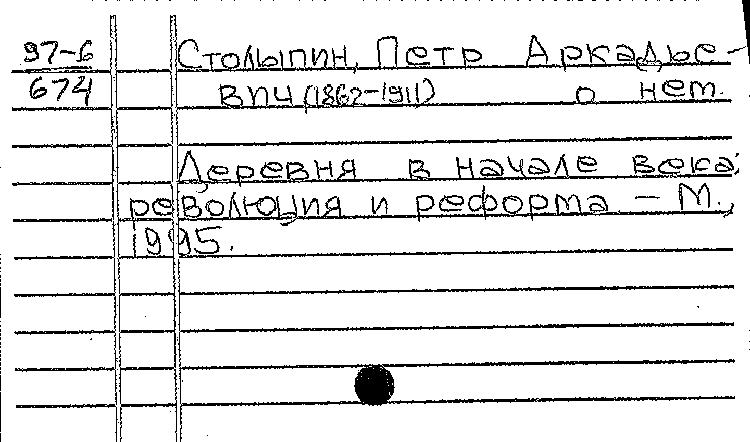 97-6 Столыпин, Петр Аркадье-
674 вич (1862-1911) о нем.
Деревня в начале века:
революция и реформа - М.,
1995.